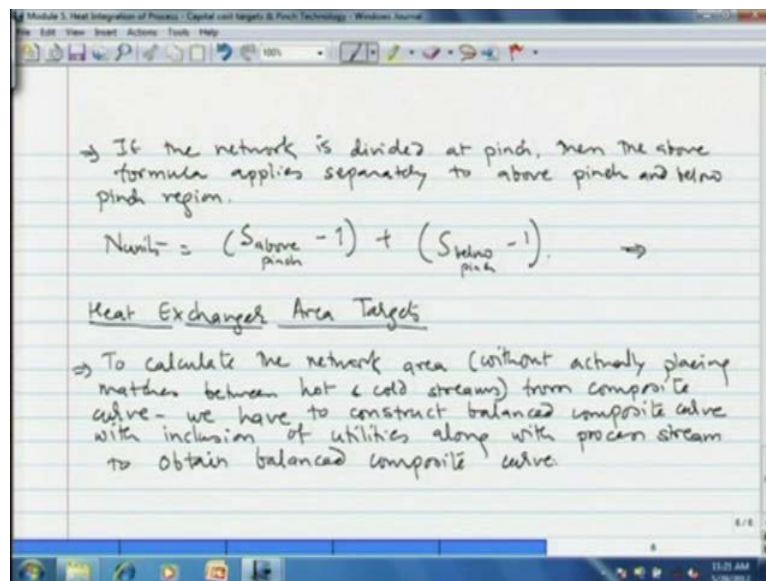 Module 5. Heat Integration of Process - Capital cost targets & Pinch Technology - Windows Journal
File Edit View Insert Actions Tools Help
100%
⇒ If the network is divided at pinch, then the above
formula applies separately to above pinch and below
pinch region.
Nunits = (S above pinch - 1) + (S below pinch - 1). ⇒
Heat Exchanger Area Targets
⇒ To calculate the network area (without actually placing
matches between hot & cold streams) from composite
curve - we have to construct balanced composite curve
with inclusion of utilities along with process stream
to obtain balanced composite curve.
6/6
6
11:25 AM